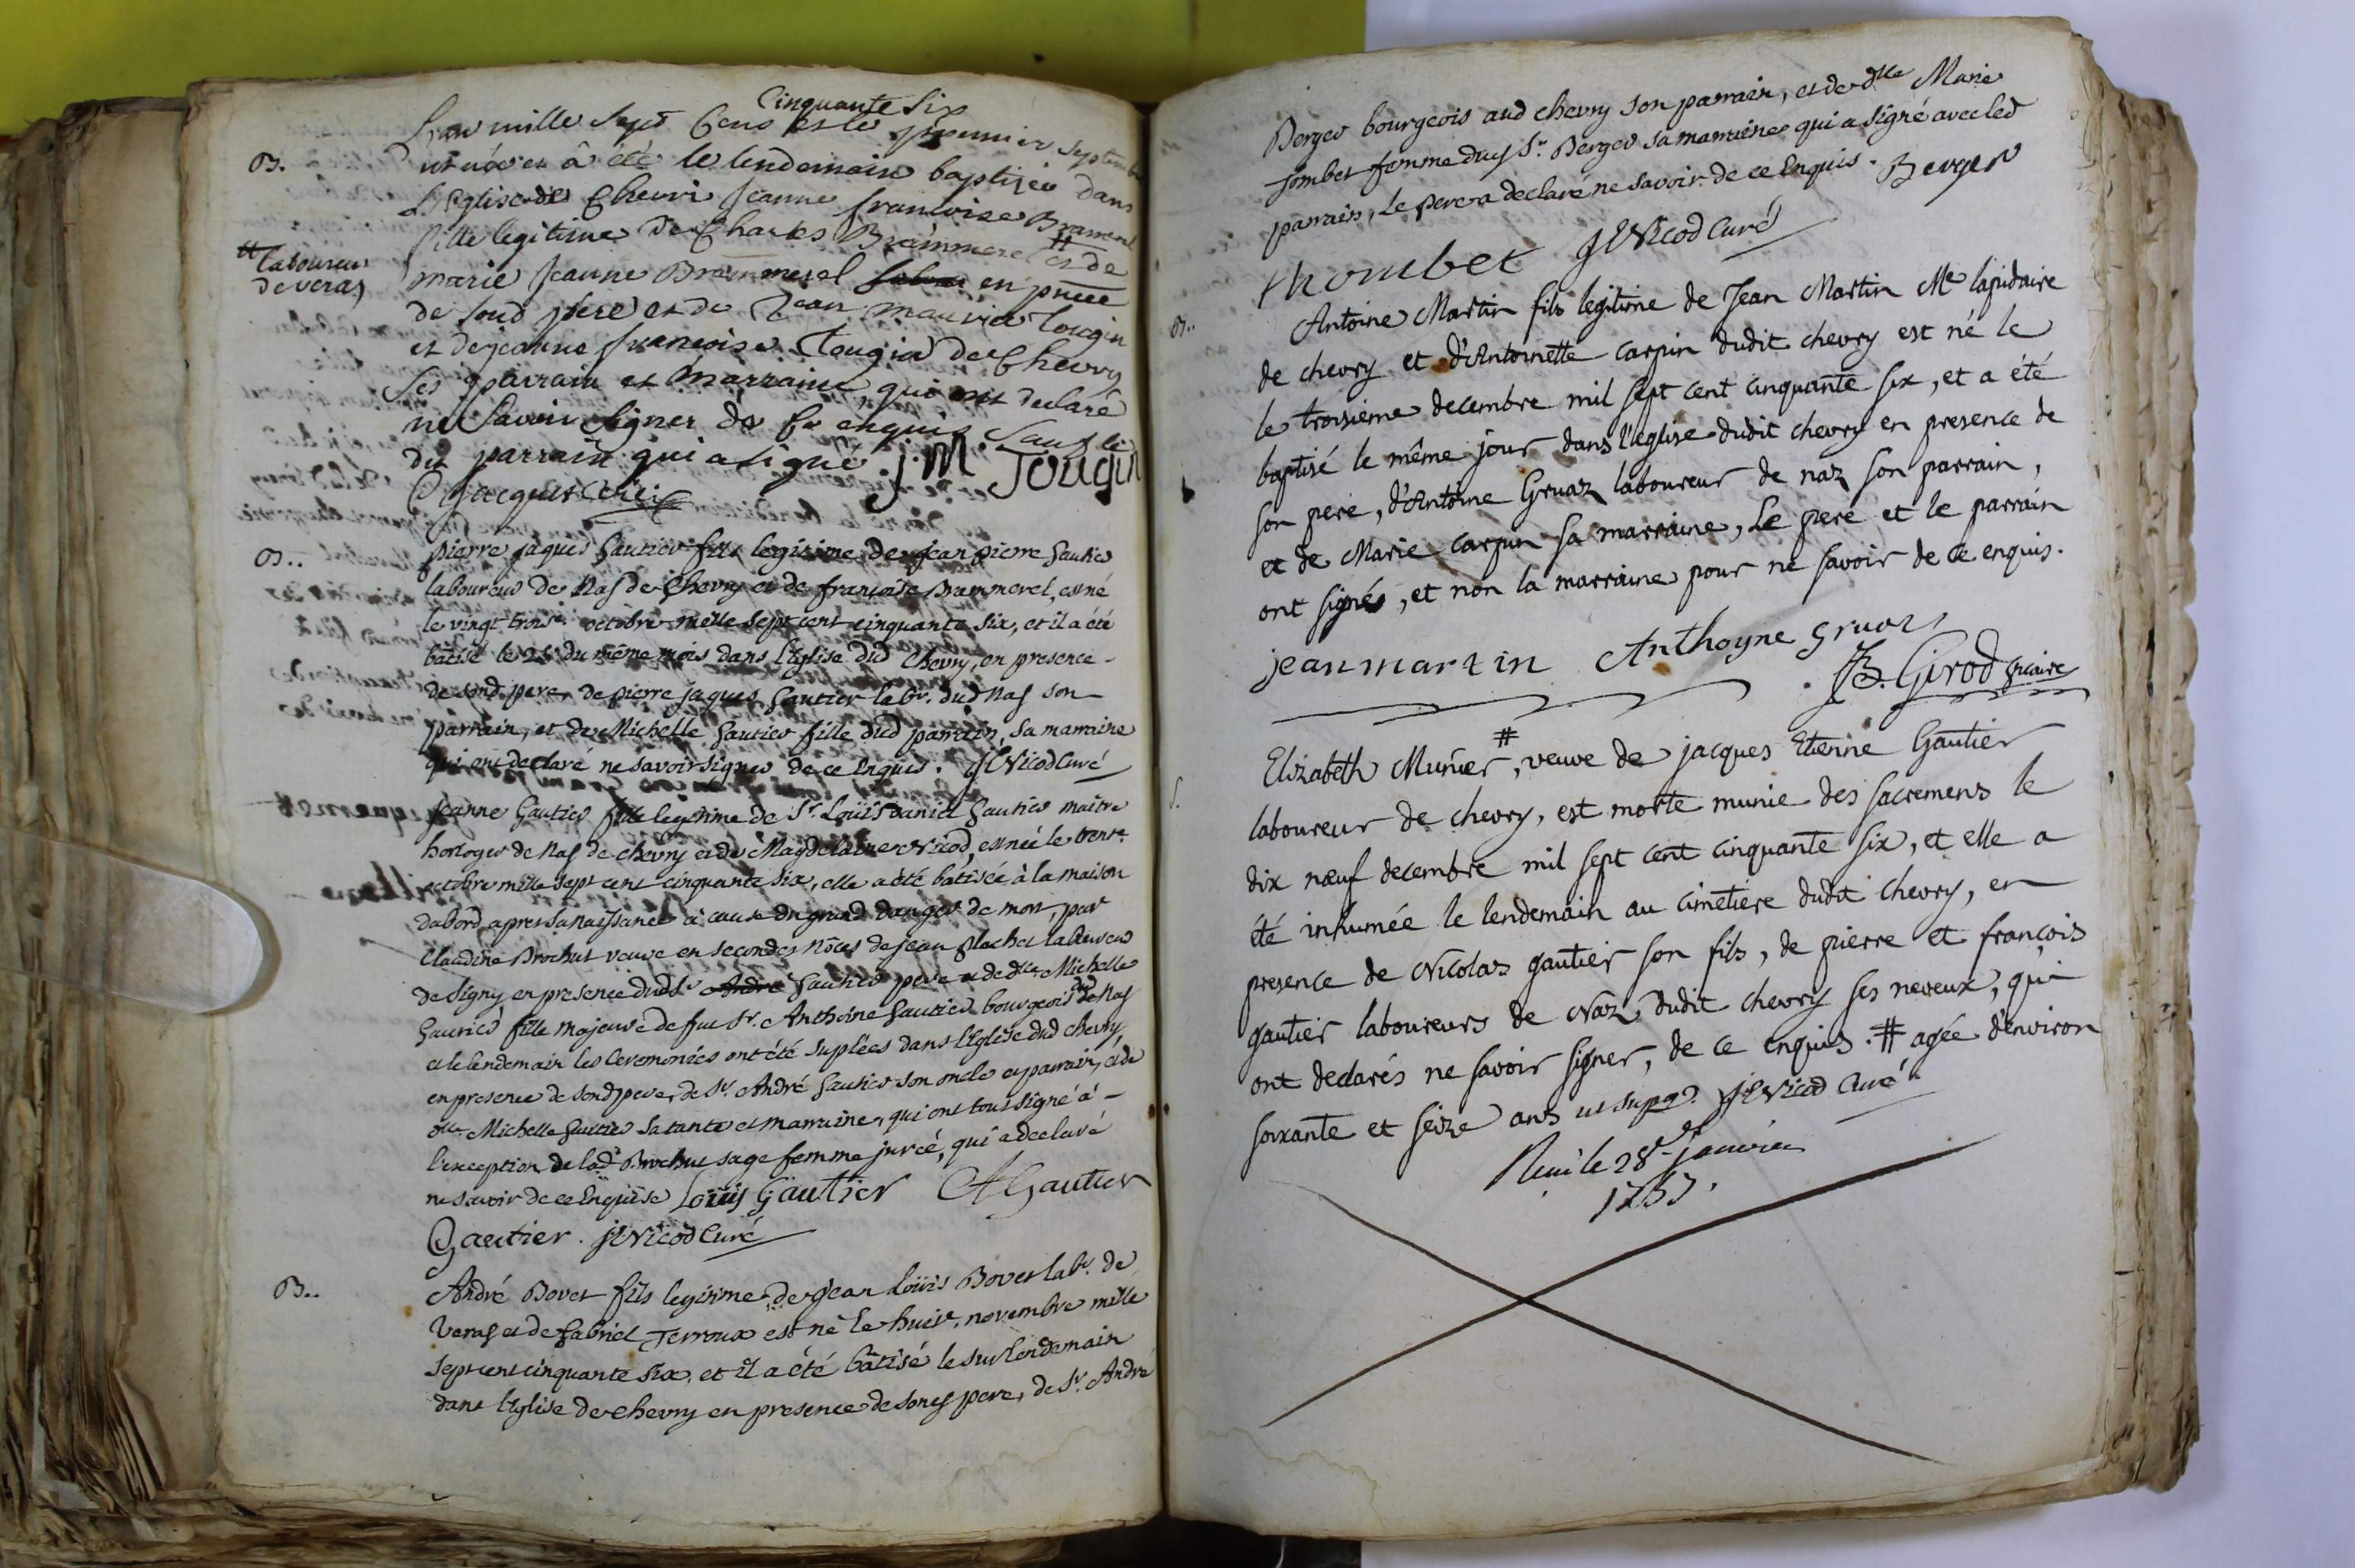 Cinquante six
L'an mille sept cens et le premier septembre
B. est née et a été le lendemain baptisée dans
L'Eglise de Chevri Jeanne francoise Bramerel
fille legitime de Charles Brammerel # et de
# laboureur
de veraz
marie Jeanne Brammerel en pnce
de soud pere et de Jean maurice Tougin
et de jeanne francoise Tougin de Chevry
ses parrain et marraine, qui ont declaré
ne savoir signer de ce enquis sauf le
dit parrain qui a signé. j. M. Tougin
B.. pierre jaques Gautier fils legitime de jean pierre Gautier
laboureur de Nas de Chevry et de françoise Brammerel, est né
le vingt troise. octobre mille sept cent cinquante six, et il a été
bâtisé le 25 du même mois dans l'Eglise dud Chevry, en presence
de sond. pere, de pierre jaques Gautier labr. dud Nas son
parrain, et de Michelle Gautier fille dud parrain, sa marraine
qui ont declaré ne savoir signer de ce Enquis. Nicod Curé
Jeanne Gautier fille legitime de Sr. Loüis Daniel Gautier maitre
horloger de Nas de chevry et de Magdelaine Nicod, est née le trent.
octobre mille sept cent cinquante six, elle a été bâtisée à la maison
dabord apres sa naissance a cause du grand danger de mort, par
Claudine Brochut veuve en secondes nôces de jean Blachet laboureur
de Signy en presence dud Sr André Gautier pere et de dlle Michelle
Gautier fille majeure de feu Sr. Anthoine Gautier bourgeois de Nas
et le lendemain les Ceremonies ont été suplées dans l'Eglise dud Chevry
en presence de sond pere, de Sr. André Gautier son oncle et parrain, et de
dlle Michelle Gautier sa tante et marraine, qui ont tous signé à
l'exception de lad. Brochut sage femme jurée, qui a declaré
ne savoir de ce Enquise Loüis Gautier A Gautier
Gautier. Nicod Curé
B.. André Bovet fils legitime de Jean Loüis Bovet labr. de
Veras et de Gabriel Terroux est né le huit. novembre mille
sept cent cinquante six, et il a été bâtisé le surlendemain
dans l'Eglise de Chevry en presence de soncy pere, de Sr. André
Berger bourgeois aud chevry son parrain, et de dlle Marie
Jombet femme ducy Sr. Berger sa marraine qui a signé avec led
parrain, Le pere a declaré ne savoir de ce Enquis. Berger
Nicod Curé
B.. Antoine Martin fils legitime de Jean Martin Me lapidaire
de chevry et d'Antoinette carpin dudit chevry est né le
le troisieme decembre mil sept cent cinquante six, et a été
baptisé le même jour dans l'eglise dudit chevry en presence de
son pere, d'Antoine Gruaz laboureur de naz son parrain,
et de Marie carpin sa marraine, Le pere et le parrain
ont signés, et non la marraine pour ne savoir de ce enquis.
jean martin Anthoyne Gruaz
JB. Girod vicaire
S. Elizabeth Munier #, veuve de jacques Etienne Gautier
laboureur de chevry, est morte munie des sacremens le
dix nœuf decembre mil sept cent cinquante six, et elle a
été inhumée le lendemain au cimetiere dudit chevry, en
presence de Nicolas gautier son fils, de pierre et françois
gautier laboureurs de Naz dudit chevry ses neveux, qui
ont declarés ne savoir signer, de ce enquis. # agée d'environ
soixante et seize ans ut supra. Nicod Curé
le 28e janvier
1757.